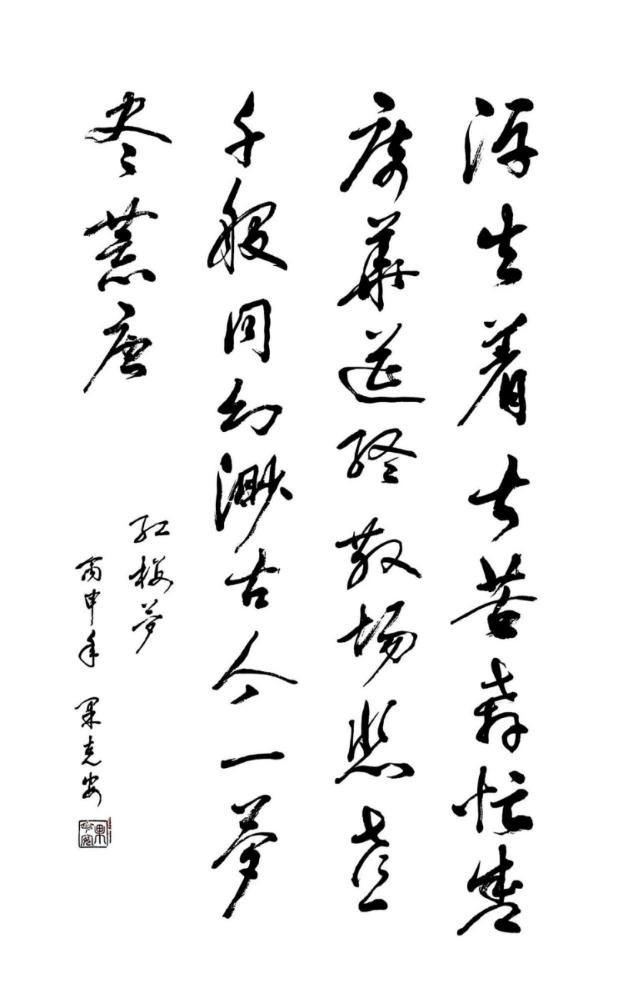 浮生着甚苦奔忙盛
席華筵终散场悲喜
千般同幻渺古今一梦
尽荒唐
红楼梦
丙申年 果克安